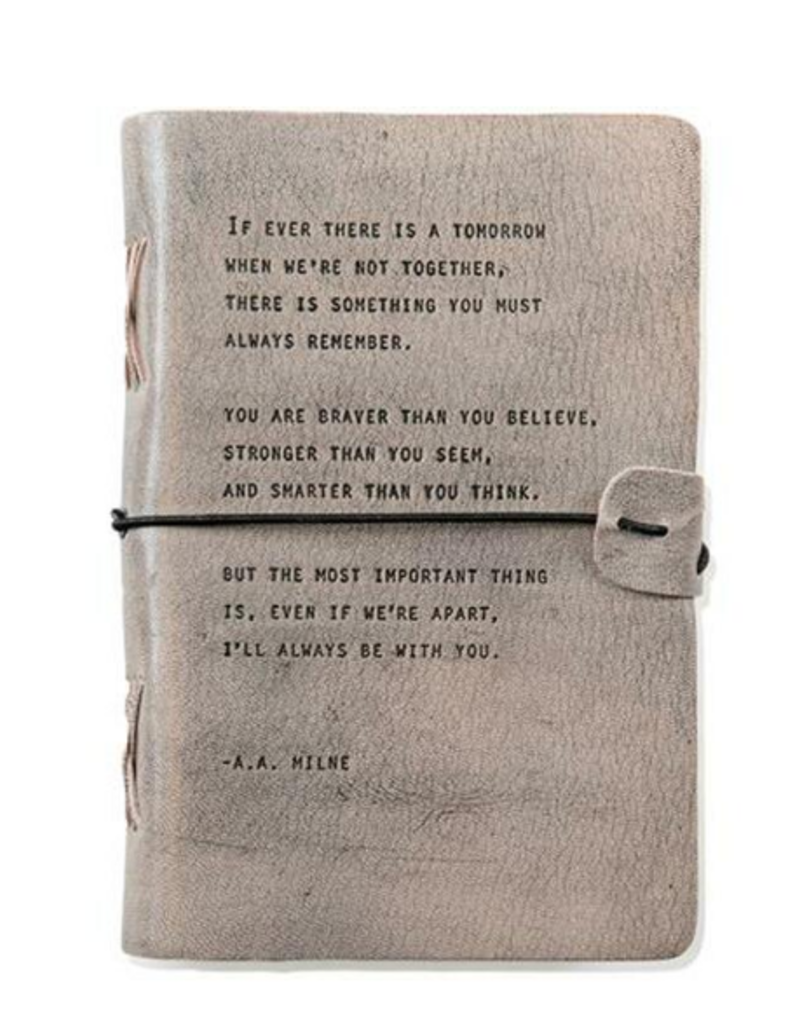 IF EVER THERE IS A TOMORROW
WHEN WE'RE NOT TOGETHER,
THERE IS SOMETHING YOU MUST
ALWAYS REMEMBER.
YOU ARE BRAVER THAN YOU BELIEVE,
STRONGER THAN YOU SEEM,
AND SMARTER THAN YOU THINK.
BUT THE MOST IMPORTANT THING
IS, EVEN IF WE'RE APART,
I'LL ALWAYS BE WITH YOU.
-A.A. MILNE